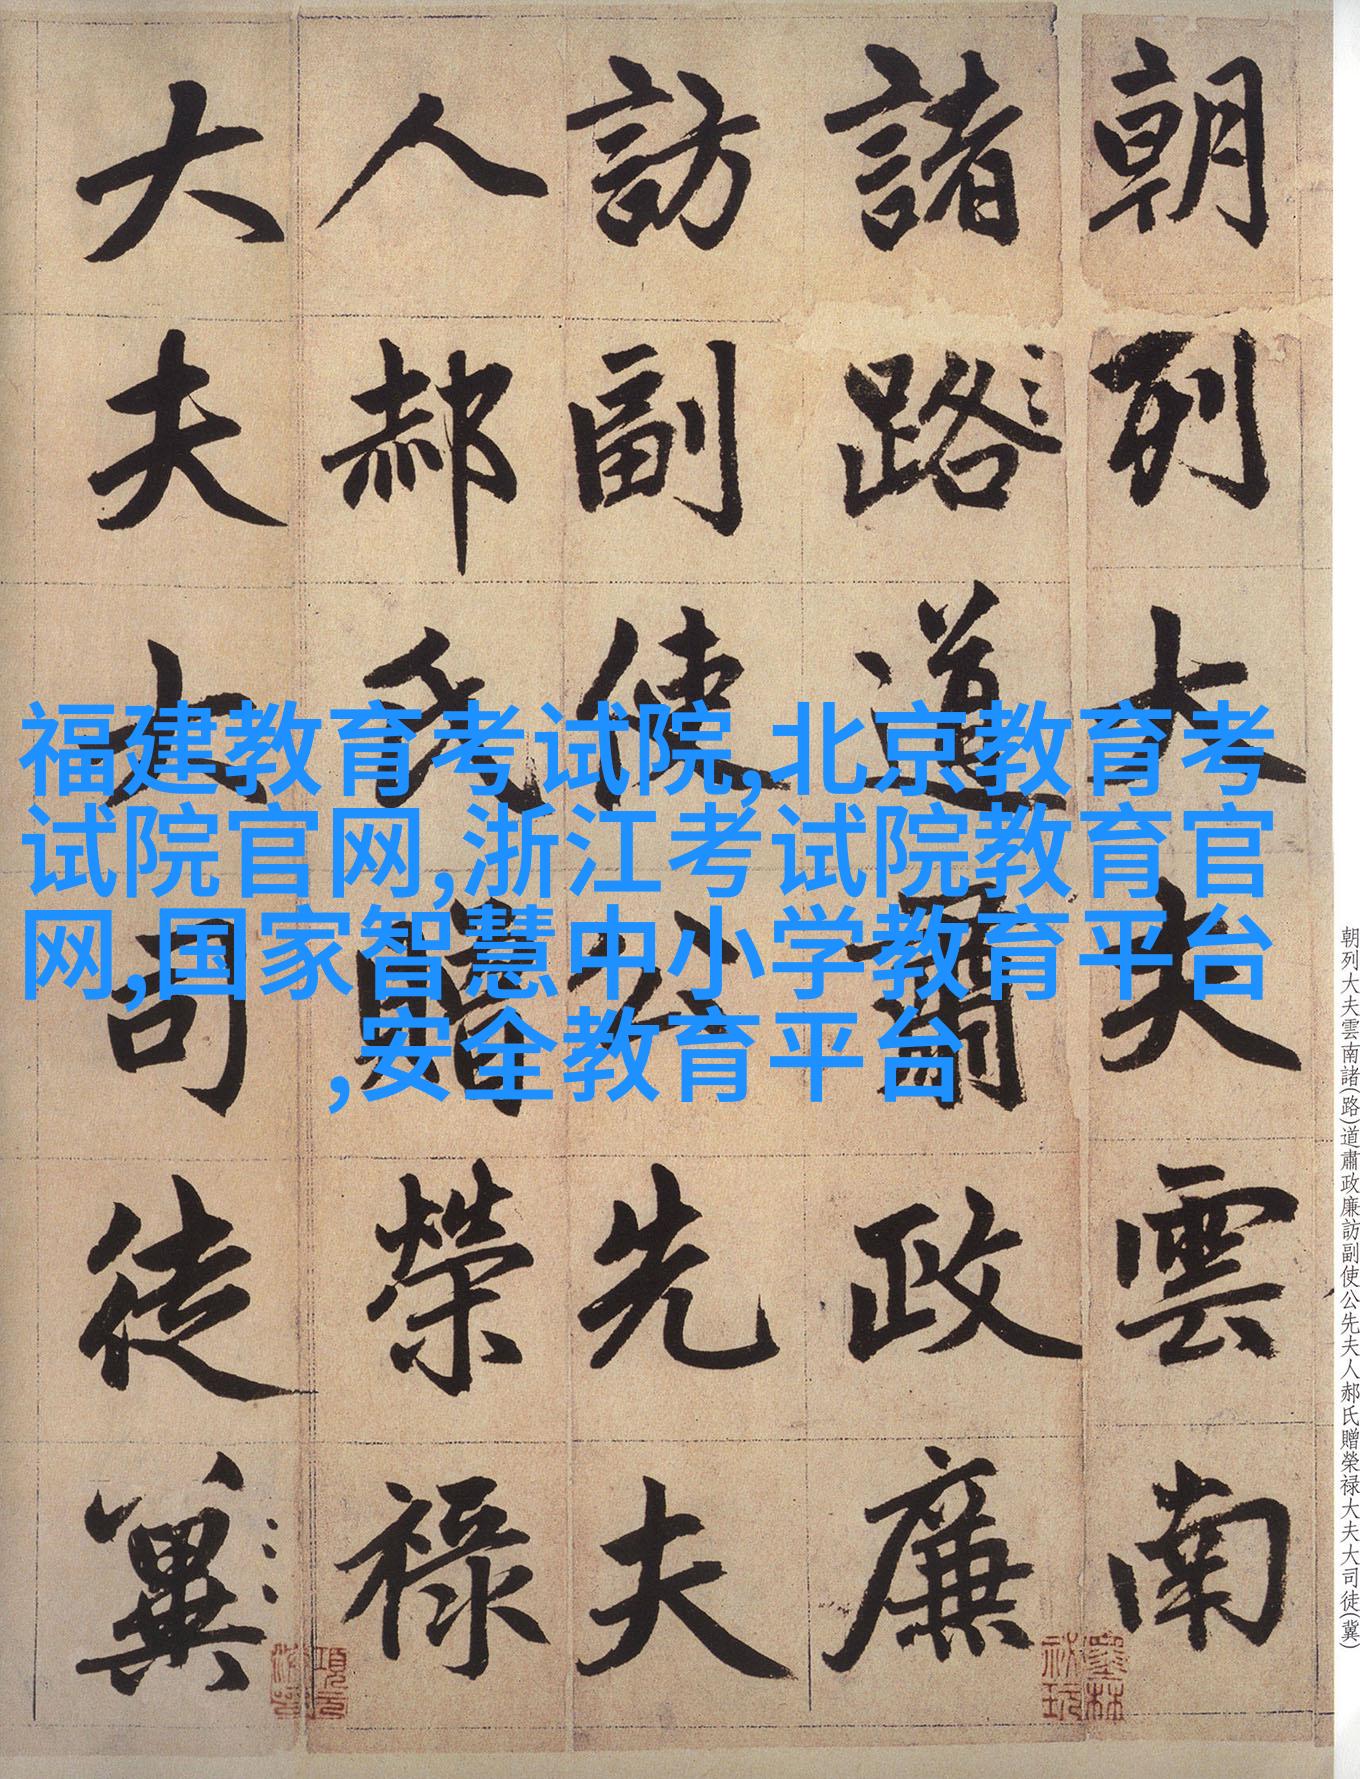 朝列大夫雲南
諸路道肅政廉
訪副使公先夫
人郝氏贈榮祿
大夫大司徒冀
福建教育考试院,北京教育考
试院官网,浙江考试院教育官
网,国家智慧中小学教育平台
,安全教育平台
朝列大夫雲南諸(路)道肅政廉訪副使公先夫人郝氏贈榮禄大夫大司徒(冀)
墨林祕玩
項元汴印